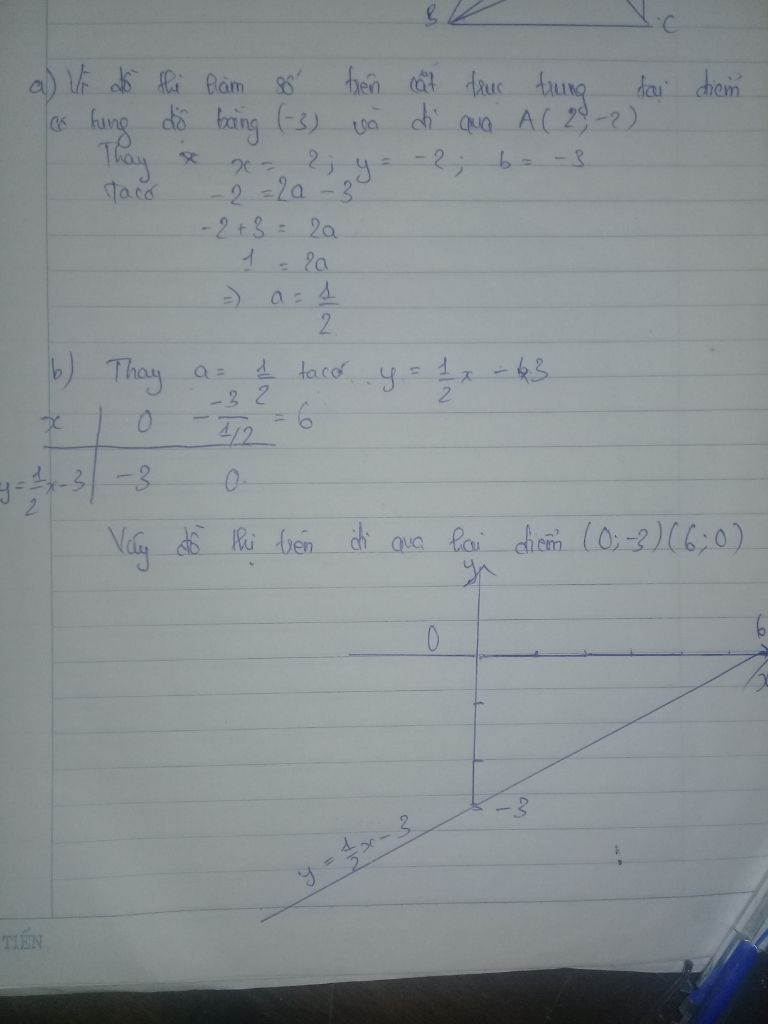 B C
a) Vì đồ thị hàm số trên cắt trục trung tại điểm
có tung độ bằng (-3) và đi qua A(2;-2)
Thay x x = 2; y = -2; b = -3
ta có -2 = 2a - 3
-2+3 = 2a
1 = 2a
=) a = 1/2
b) Thay a = 1/2 ta có y = 1/2 x - 3
x 0 - -3/1/2 = 6
y = 1/2 x - 3 -3 0
Vậy đồ thị trên đi qua hai điểm (0;-3)(6;0)
y
0 6
x
-3
y = 1/2 x - 3
TIẾN